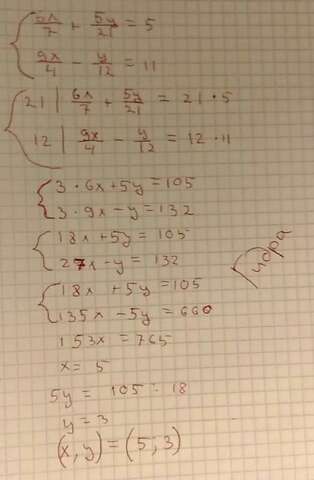 6x/7 + 5y/21 = 5
9x/4 - y/12 = 11
21 | 6x/7 + 5y/21 = 21 · 5
12 | 9x/4 - y/12 = 12 · 11
3 · 6x + 5y = 105
3 · 9x - y = 132
18x + 5y = 105
27x - y = 132
18x + 5y = 105
135x - 5y = 660
153x = 765
x = 5
5y = 105 - 18
y = 3
(x, y) = (5; 3)